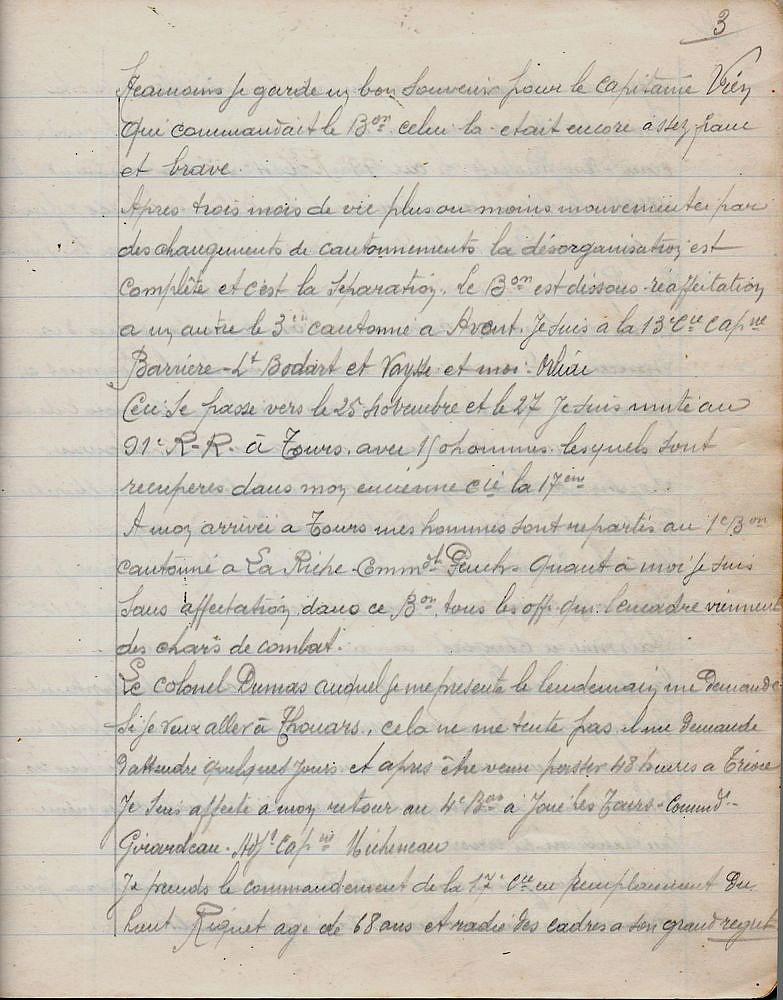 3
Neamoins je garde un bon souvenir pour le capitaine Viey
qui commandait le Bon celui la etait encore assez franc
et brave.
Apres trois mois de vie plus ou moins mouvementee par
des changements de cantonnements la désorganisation est
complète et c'est la separation. Le Bon est dissous réaffectation
a un autre le 3em cantonné a Avont. Je suis à la 13e Cie Capne
Barrière - Lt Bodart et Vaysse et moi.
Ceci se passe vers le 25 Novembre et le 27 Je suis muté au
91e R-R. à Tours. avec 150 hommes lesquels sont
recuperes dans mon encienne cie la 17em
A mon arrivée a Tours mes hommes sont repartis au 1e Bon
cantonné a La Riche. Commdt Quant à moi je suis
sans affectation dans ce Bon, tous les off. qui l'encadre viennent
des chars de combat.
Le colonel Dumas auquel je me presente le lendemain me demande
si je veux aller à Thouars, cela ne me tente pas il me demande
d'attendre quelques jours et apres être venu passer 48 heures a
Je suis affecté a mon retour au 4e Bon à Joué Les Tours. Commdt
Girardeau. Adjt Capne Micheneau
Je prends le commandement de la 17e Cie en remplacement du
Lieut Riquet age de 68 ans et radié des cadres a son grand regret